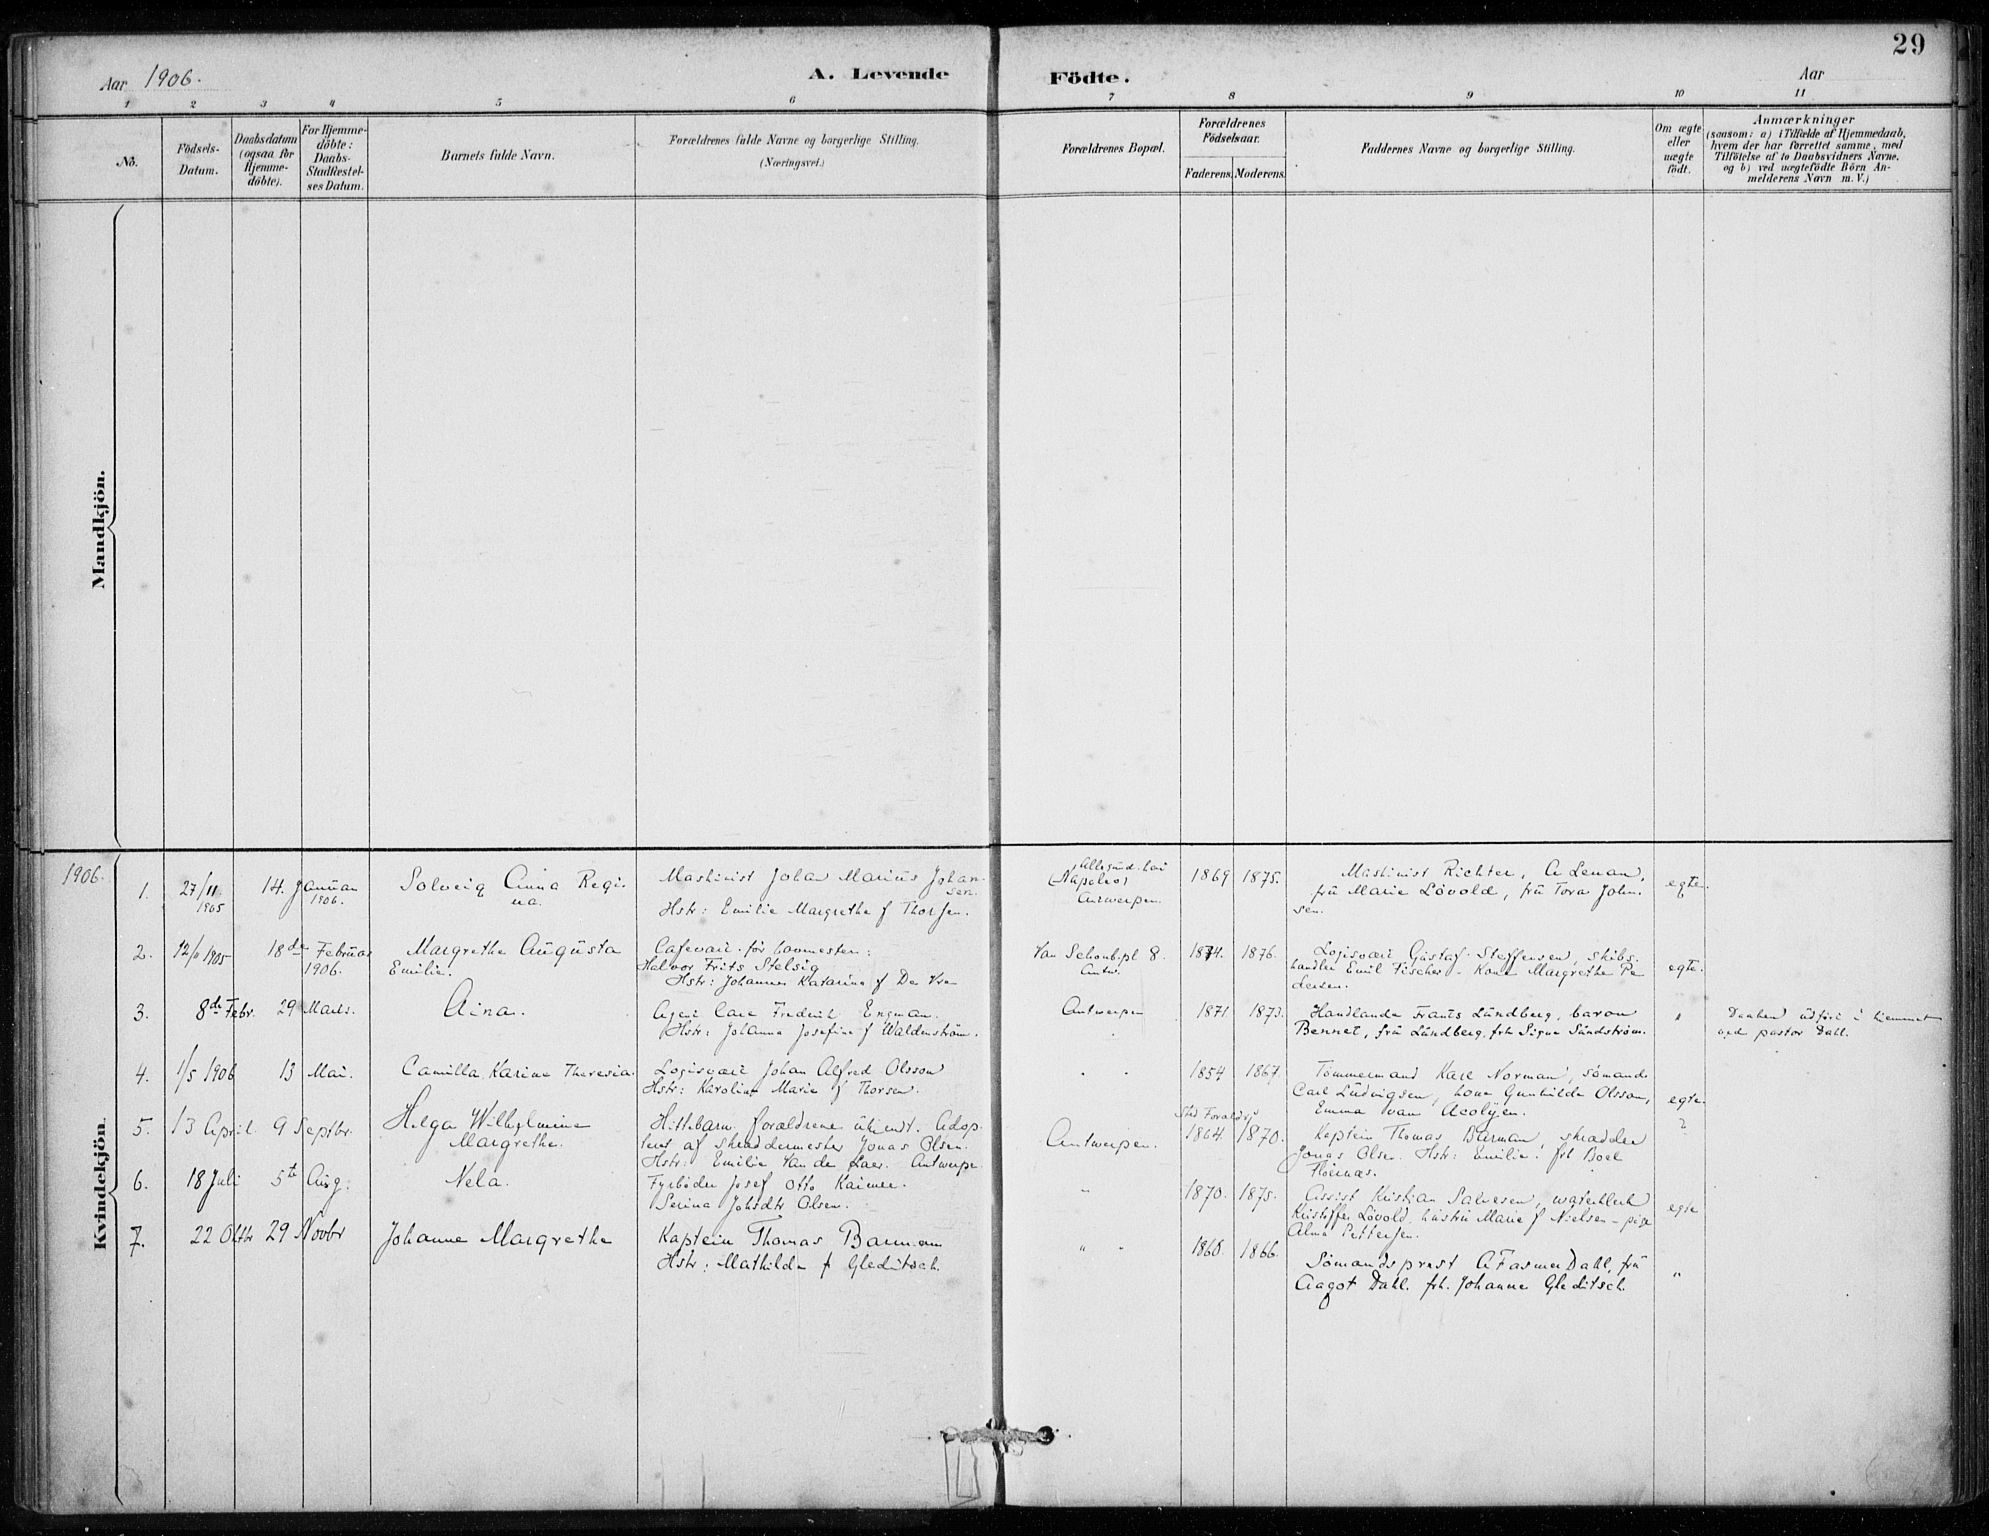 29
Aar 1906.
A. Levende Födte.
Aar
1 2 3 4 5 6 7 8 9 10 11
No.
Födsels-
Datum.
Daabsdatum
(ogsaa for
Hjemme-
döbte).
For Hjemme-
döbte:
Daabs-
Stadfestel-
ses Datum.
Barnets fulde Navn.
Forældrenes fulde Navne og borgerlige Stilling.
(Næringsvei.)
Forældrenes Bopæl.
Forældrenes
Födselsaar.
Faderens. Moderens.
Faddernes Navne og borgerlige Stilling.
Om ægte
eller
uægte
födt.
Anmærkninger
(saasom: a) i Tilfælde af Hjemmedaab,
hvem der har forrettet samme, med
Tilföielse af to Daabsvidners Navne,
og b) ved uægtefödte Börn An-
melderens Navn m. V.)
Mandkjön.
Kvindekjön.
1906.
1.
27/11
1905
14. Januar
1906.
Solveig Anna Regi-
na.
Maskinist Johan Marius Johan-
sen.
Hstr: Emilie Margrethe f Thorsen.
(Napoleo)
Antwerpen.
1869 1875.
Maskinist Richter, A Leman,
frü Marie Lövold, frü Tora John-
sen.
egte.
2.
1905
18de Februar
1906.
Margrethe Augusta
Emilie.
Cafevært för hovmester:
Halvor Frits Stelsig
Hstr: Johannes Katarina f De Vre
Van Schonb.pl 8.
Antw.
1874. 1876.
Logisvært Gustaf Steffensen, skibs-
handler Emil Fischer - Kone Margrethe Pe
dersen.
egte.
3.
8de Febr. 29 Marts.
Aina.
Agent Carl Frederik Engman.
Hstr: Johanna Josefina f Waldenström.
Antwerpen
1871 1873.
Handlande Frants Lündberg, baron
Bennet, frü Lündberg, frk Signe Sündström.
"
Daaben udfört i hjemmet
ved pastor Dahl.
4.
1/5 1906 13 Mai.
Camilla Karina Theresia.
Logisvært Johan Alfred Olsson
Hstr: Karoline Marie f Thorsen.
" "
1854 1867
Tömmermand Karl Norman, sömand
Carl Lüdvigsen, kone Gunhilde Olsson,
Emma van Acolyen.
egte.
5.
13 April 9 Septbr.
Helga Wilhelmine
Margrethe.
Hittebarn. forældrene ukjendt. Adop-
tert af skræddermester Jonas Olsen.
Hstr: Emilie Van de Laer. Antwerpe
Antwerpen.
1864. 1870.
Kaptein Thomas Barman, skrædder
Jonas Olsen. Hstr: Emilie. frk Boel
?
6.
18 Juli 5te Aug.
Nela.
Fyrböder Josef Otto Kaimer.
Serina Johsdtr Olsen.
"
1870. 1875.
Assist Kristian Salvesen, waterclerk
Kristoffer Lövold, hüstrü Marie f Nielsen - pige
Alma Pettersen.
egte
7.
22 Oktbr 29 Novbr
Johanne Margrethe
Kaptein Thomas Barman
Hstr: Mathilde f Gleditsch.
" "
1860 1866.
Sömandsprest A Fasmer Dahl, frü
Aagot Dahl. frk. Johanne Gleditsch.
"